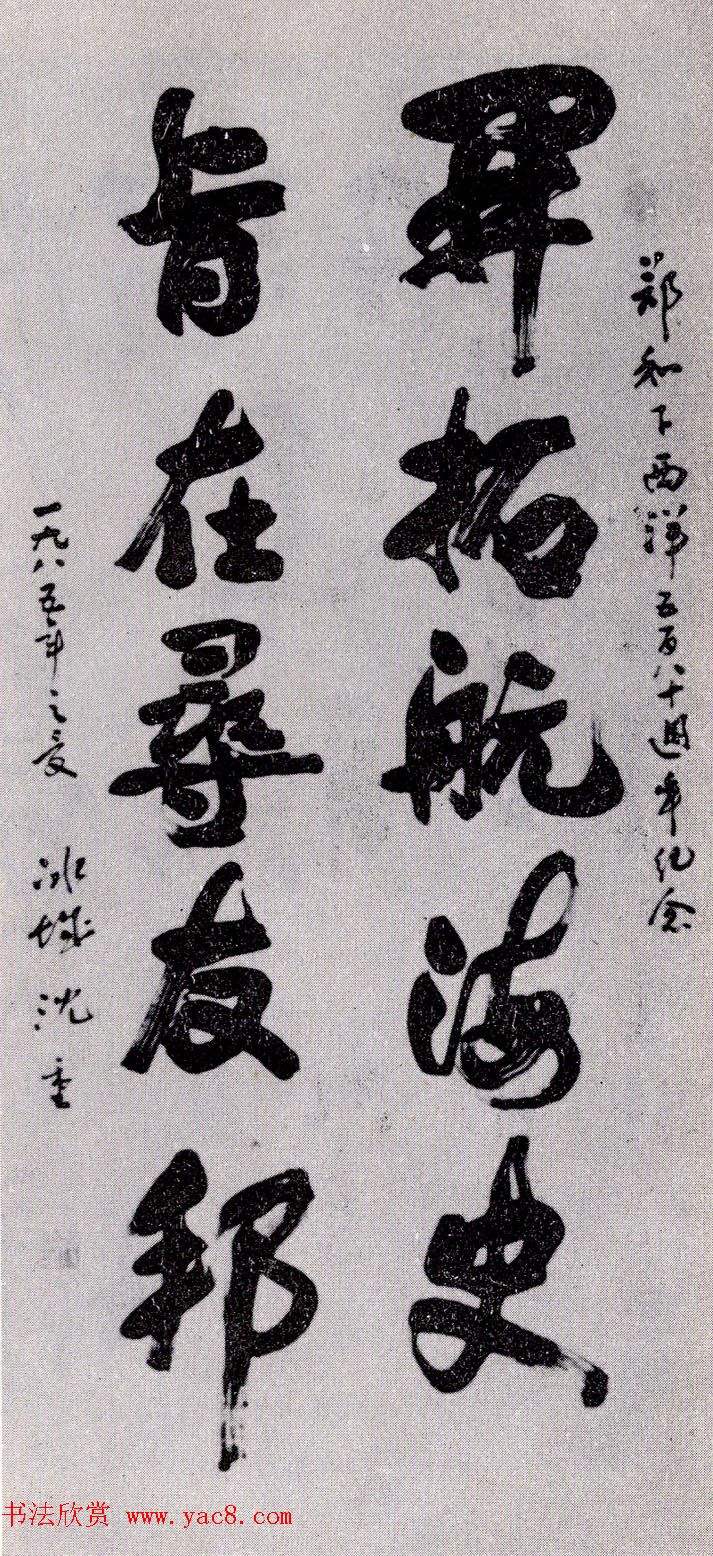 郑和下西洋五百八十週年纪念
開拓航海史
旨在尋友邦
一九八五年之夏 冰城沈重
书法欣赏 www.yac8.com